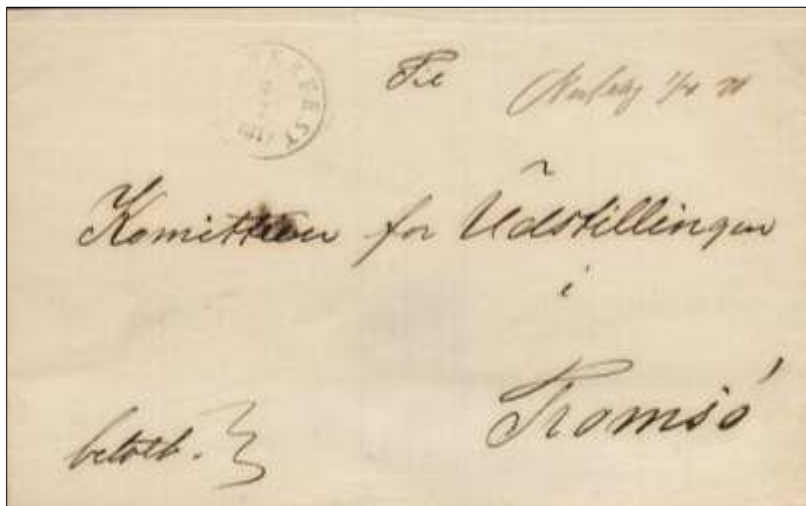 Til
Komitteen for Udstillingen
i
Tromsö
betalt.